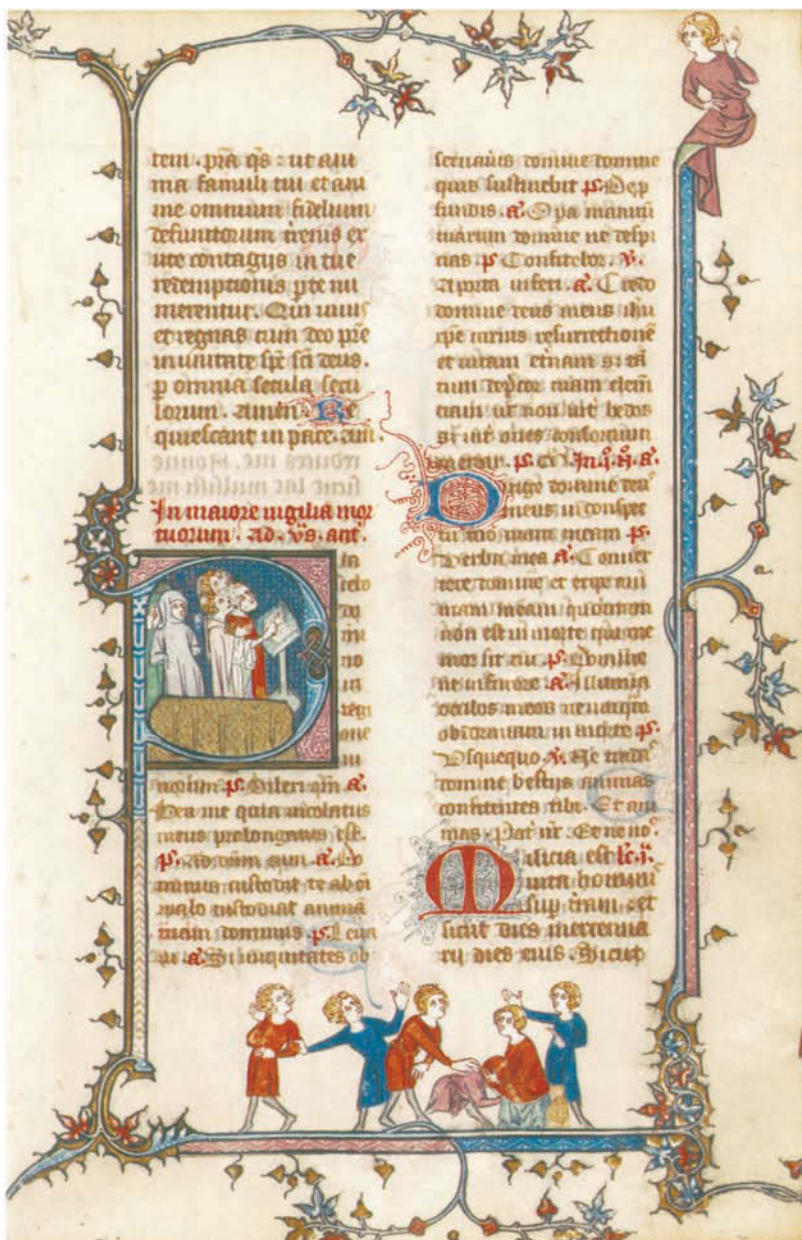 tem. p̄ra q̄s: ut ani
ma famuli tui et ani
me omnium fidelium
defunctorum
ute contagiis in tue
redemptionis pte nu
merentur. Qui uiuis
et regnas cum deo p̄re
in unitate sp̄c sc̄i deus.
p omnia secula secu
lorum. amen. Re
quiescant in pace. am.
In maiore uigilia mor
tuorum. ad. ūs. ant̄.
la
ma
no
in
regi
one
ui
uorum. p̄s. Dilexi qm̄ a.
Heu me quia incolatus
meus prolongatus est.
p̄s. Ad dn̄m cum a. Do
minus custodit te ab oī
malo custodiat anima
tuam dominus. p̄s. Leua
ui a. Si iniquitates ob
seruauis domine domine
quis sustinebit p̄s. De p
fundis. a. Opa manuū
tuarum domine ne despi
cias. p̄s Confitebor. v̄.
A porta inferi. a. Credo
domine deus meus ih̄u
xpe carnis resurrectionē
et uitam et̄nam si tā
tum tuam clem̄
ciam ut non
oues consortium
p̄s. In .i. n̄. a.
Dirige domine deus
meus in conspec
tu tuo uiam meam p̄s.
Verba mea a. Conuer
tere domine et eripe ani
mam meam quoniam
non est in morte qui me
mor sit tui. p̄s. Domine
ne in furore a. Illumina
oculos meos ne
obdormiam in morte p̄s.
Vsquequo. v̄. Ne tradas
domine bestiis animas
confitentes tibi. Et ani
mas. Pat n̄r. Et ne nos.
Milicia est lc̄. i.
uita hominis
sup t̄ram. et
sicut dies mercenna
rii dies eius. Sicut